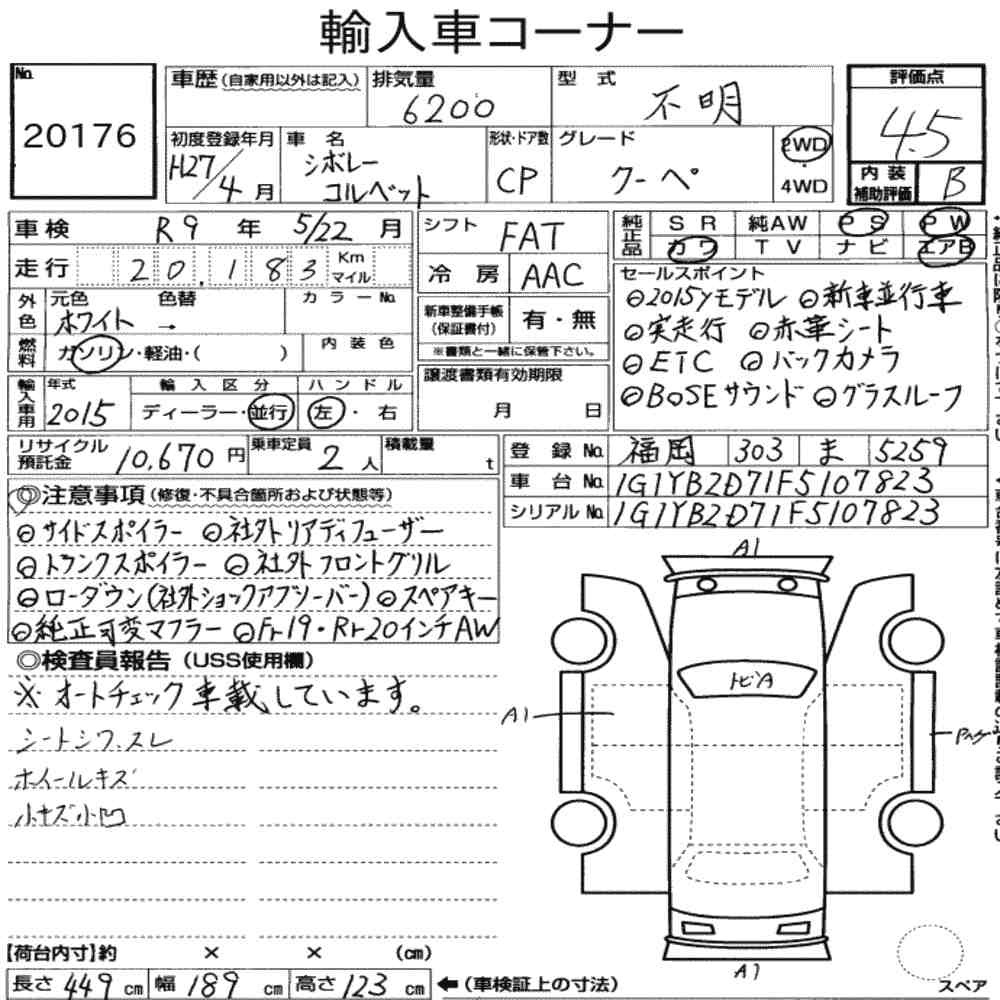 輸入車コーナー
No.
20176
車歴(自家用以外は記入) 排気量 6200 型式 不明
評価点
4.5
内装補助評価 B
初度登録年月 H27/4月 車名 シボレー コルベット 形状・ドア数 CP グレード クーペ 2WD・4WD
車検 R9年 5/22月
シフト FAT
純正品 SR 純AW PS PW
カワ TV ナビ エアB
走行 20,183 Km マイル
冷房 AAC
セールスポイント
⊖2015yモデル ⊖新車並行車
⊖実走行 ⊖赤革シート
⊖ETC ⊖バックカメラ
⊖BOSEサウンド ⊖グラスルーフ
外色 元色 ホワイト → 色替 カラーNo.
新車整備手帳(保証書付) 有・無
※書類と一緒に保管下さい。
燃料 ガソリン・軽油・( ) 内装色
譲渡書類有効期限
月 日
輸入車用 年式 2015 輸入区分 ディーラー・並行 ハンドル 左・右
リサイクル預託金 10,670円 乗車定員 2人 積載量 t
登録No. 福岡 303 ま 5259
車台No. 1G1YB2D71F5107823
シリアルNo. 1G1YB2D71F5107823
◎注意事項(修復・不具合箇所および状態等)
⊖サイドスポイラー ⊖社外リアディフューザー
⊖トランクスポイラー ⊖社外フロントグリル
⊖ローダウン(社外ショックアブソーバー) ⊖スペアキー
⊖純正可変マフラー ⊖Fr19・Rr20インチAW
◎検査員報告(USS使用欄)
※オートチェック車載しています。
シートシワ、スレ
ホイールキズ
小キズ小凹
A1
トビA
A1
A1
【荷台内寸】約 × × (cm)
長さ 449cm 幅 189cm 高さ 123cm ←(車検証上の寸法)
スペア